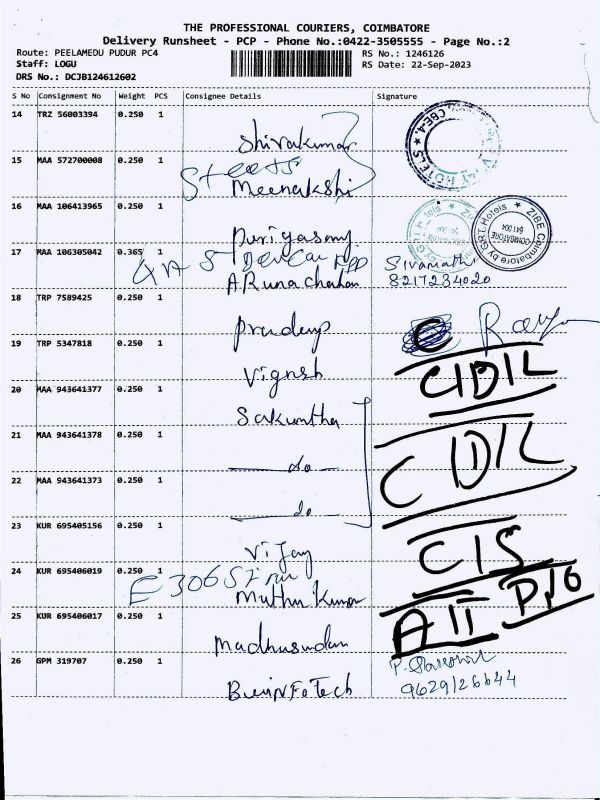 THE PROFESSIONAL COURIERS, COIMBATORE
Delivery Runsheet - PCP - Phone No.:0422-3505555 - Page No.:2
Route: PEELAMEDU PUDUR PC4 RS No.: 1246126
Staff: LOGU RS Date: 22-Sep-2023
DRS No.: DCJB124612602
S No Consignment No Weight PCS Consignee Details Signature
14 TRZ 56003394 0.250 1
Shivakumar
15 MAA 572700008 0.250 1
Meenakshi
16 MAA 106413965 0.250 1
17 MAA 106305042 0.365 1
ARunachalam
8217284020
18 TRP 7589425 0.250 1
Pradeep
19 TRP 5347818 0.250 1
Vignesh
CIDIL
20 MAA 943641377 0.250 1
Sakuntha
21 MAA 943641378 0.250 1
do
CIDIL
22 MAA 943641373 0.250 1
do
23 KUR 695405156 0.250 1
Vijay
CIS
24 KUR 695406019 0.250 1
E 306
Muthu Kumar
25 KUR 695406017 0.250 1
Madhusudan
26 GPM 319707 0.250 1
9629126644